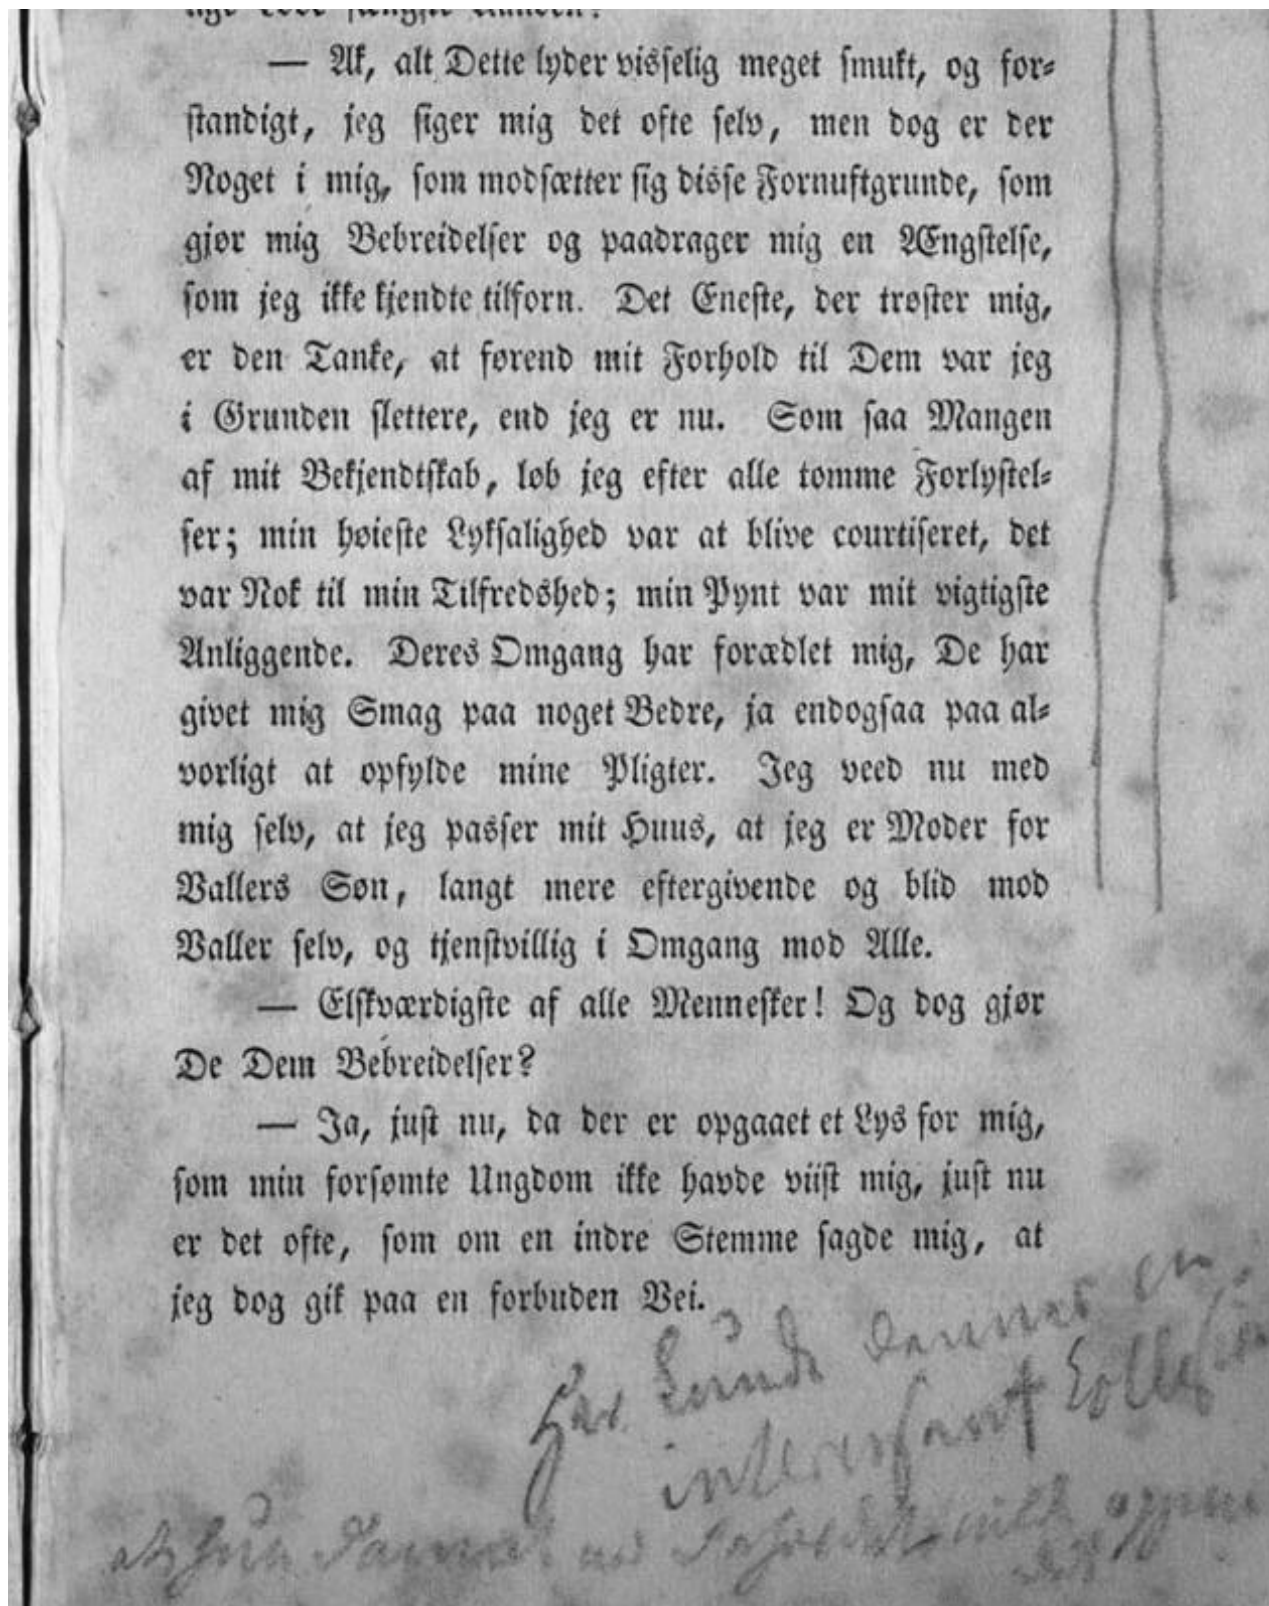 — Ak, alt Dette lyder visselig meget smukt, og for-
standigt, jeg siger mig det ofte selv, men dog er der
Noget i mig, som modsætter sig disse Fornuftgrunde, som
gjør mig Bebreidelser og paadrager mig en Ængstelse,
som jeg ikke kjendte tilforn. Det Eneste, der trøster mig,
er den Tanke, at førend mit Forhold til Dem var jeg
i Grunden slettere, end jeg er nu. Som saa Mangen
af mit Bekjendtskab, løb jeg efter alle tomme Forlystel-
ser; min høieste Lyksalighed var at blive courtiseret, det
var Nok til min Tilfredshed; min Pynt var mit vigtigste
Anliggende. Deres Omgang har forædlet mig, De har
givet mig Smag paa noget Bedre, ja endogsaa paa al-
vorligt at opfylde mine Pligter. Jeg veed nu med
mig selv, at jeg passer mit Huus, at jeg er Moder for
Vallers Søn, langt mere eftergivende og blid mod
Valler selv, og tjenstvillig i Omgang mod Alle.
— Elskværdigste af alle Mennesker! Og dog gjør
De Dem Bebreidelser?
— Ja, just nu, da der er opgaaet et Lys for mig,
som min forsømte Ungdom ikke havde viist mig, just nu
er det ofte, som om en indre Stemme sagde mig, at
jeg dog gik paa en forbuden Vei.
Her kunde dannes en
interessant
at hun